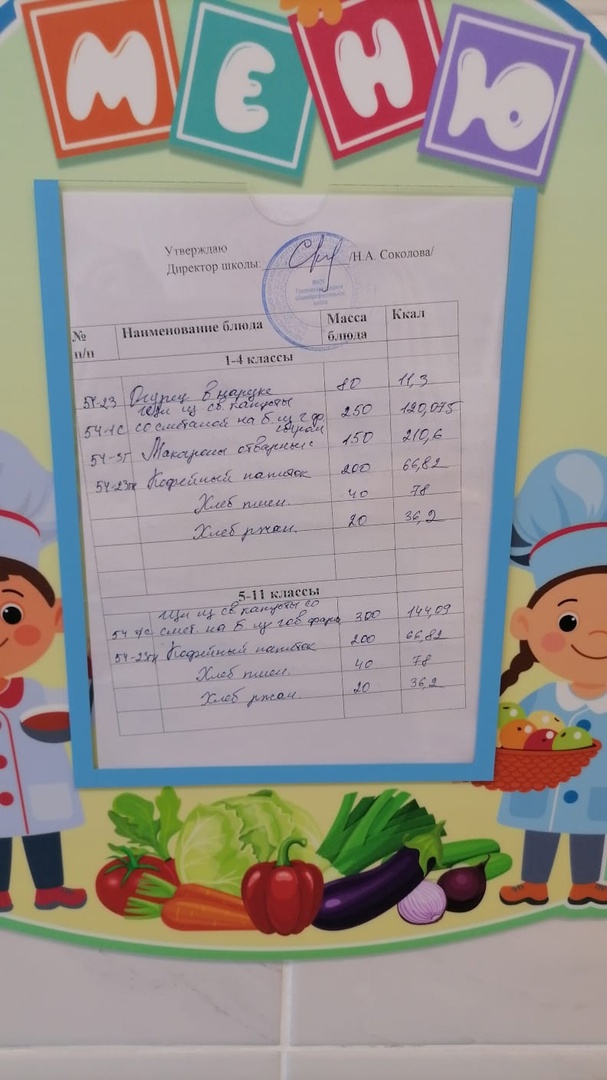 МЕНЮ
Утверждаю
Директор школы: /Н.А. Соколова/
№ п/п Наименование блюда Масса блюда Ккал
1-4 классы
54-23 Огурец в нарезке 80 11,3
Щи из св капусты
54-1с со сметаной на б из г ф 250 120,075
54-3г Макароны отварные с сыром 150 210,6
54-23гн Кофейный напиток 200 66,82
Хлеб пшен. 40 78
Хлеб ржан. 20 36,2
5-11 классы
Щи из св капусты со
54-1с смет. на б из гов фарш 300 144,09
54-23гн Кофейный напиток 200 66,82
Хлеб пшен. 40 78
Хлеб ржан. 20 36,2